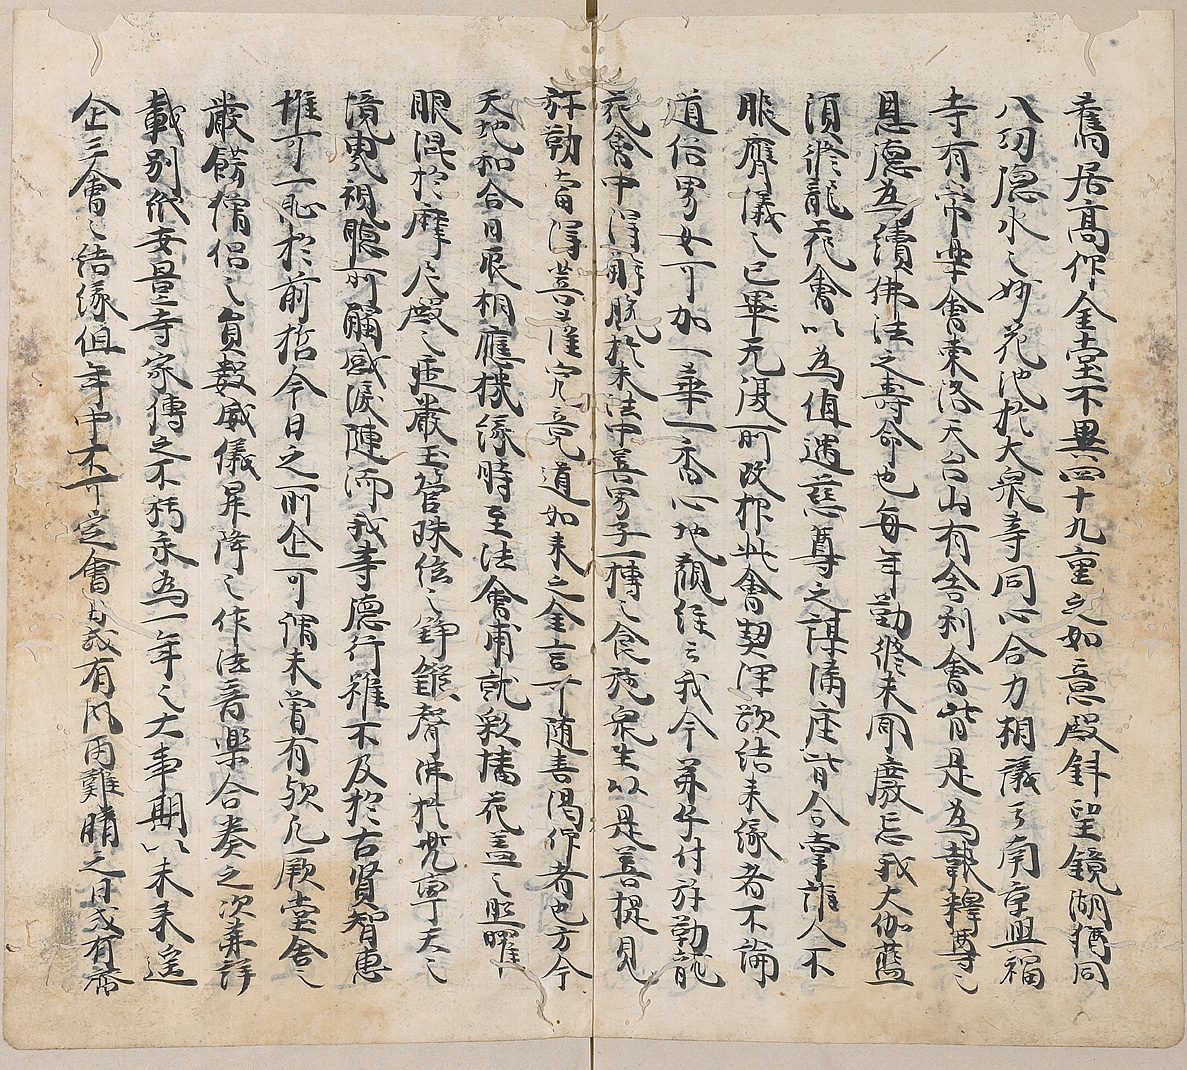 舊寓居高作金堂不異四十九重之如意殿斜望鏡湖猶同
八功隠水之妙花池於大衆寺同心合力相議云南京興福
寺有常楽會東洛天台山有舎利會皆是為報釋尊之
恩德為續佛法之壽命也毎年勤終未聞廢忘我大伽藍
須終龍花會以為值遇慈尊之謀満座皆合掌誰人不
服膺儀之已畢元慶所改作此會契深欲結来縁者不論
道俗男女可加一華一香心地観経云我今弟子付弥勒龍
花會中得解脱於末法中善男子一摶之食施衆生以是善根見
弥勒當得菩薩究竟道如来之金言可随喜渇仰者也方今
天地和合日辰相應機縁時至法會甫就終幡花盖之照曜
眼混於摩尼殿之荘嚴玉管珠絃之錚鏦聲沸於兜率天之
境鬼視聽所觸感涙陣而我寺德行雖不及於古賢智恵
惟可一恥於前哲今日之所企可謂未曾有歟凡厥堂舎之
嚴餝僧侶之員數威儀昇降之作法音樂合奏之次第詳
載別紙安置寺家傳之不朽永為一年之大事期以未来遥
企三會之結縁但年中不可定會日或有風雨難晴之日或有